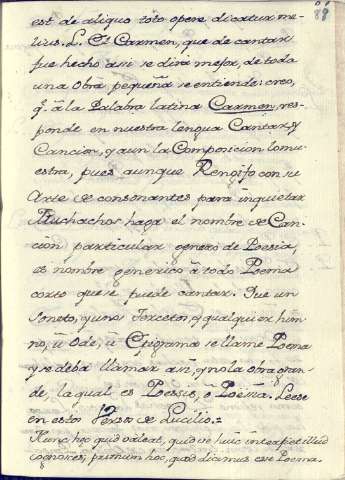 88
est de aliquo toto opere dicatur me-
lius. L. Et Carmen, que de cantari
fue hecho asi se dira mejor, de toda
una obra, pequeña se entiende: creo,
q.e à la Palabra latina Carmen, res-
ponde en nuestra lengua Cantar, y
Cancion, y aun la Composicion lo mu-
estra, pues aunque Rengifo con su
Arte de consonantes para inquietar
Muchachos haga el nombre de Can-
cion particular genero de Poesia,
es nombre generico à todo Poema
corto que se puede cantar. Que un
Soneto, y unos Tercetos, y qualquier him-
no, ù Ode, ù Epigrama se llame Poema
y se deba llamar asi, y no la obra gran-
de, la qual es Poessis, ò Poëma. Leese
en estos Versos de Lucilio.=
Nunc hoc quid valeat, quidve huic interpet illud
cognosces; primum hoc, quod dicimus esse Poema.